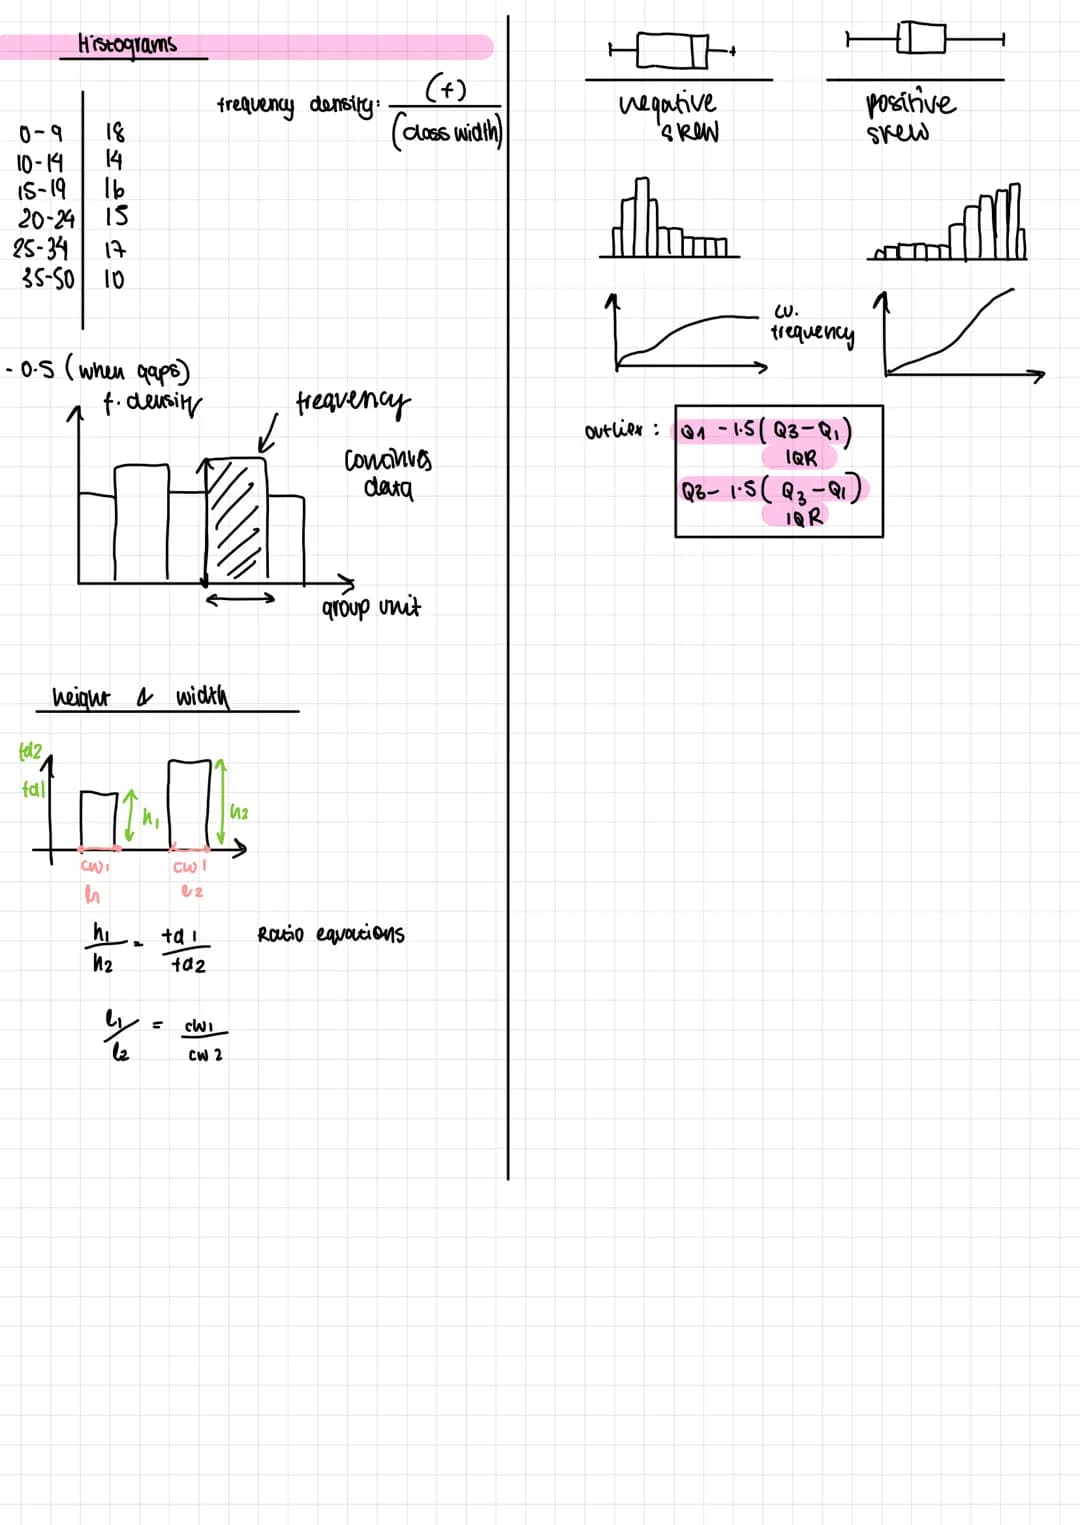 Histograms
frequency density: (f)
(class width)
0-9 18
10-14 14
15-19 16
20-24 15
25-34 17
35-50 10
- 0.5 (when gaps)
f. density
frequency
continuos
data
group unit
height & width
fd2
fd1
h1
h2
cw1
cw1
l1
l2
h1 = fd1
h2 fd2
Ratio equations
l1 = cw1
l2 cw2
negative
skew
positive
skew
cu.
frequency
outlier : Q1 - 1.5(Q3-Q1)
IQR
Q3- 1.5(Q3-Q1)
IQR